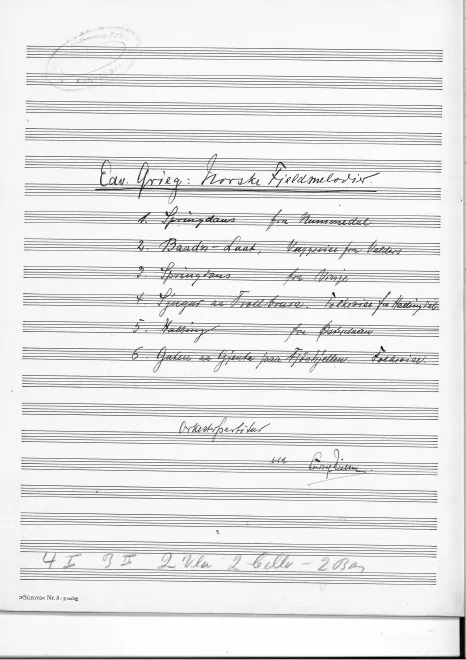 Edv. Grieg: Norske Fjeldmelodier.
1. Springdans fra Nummedal
2. Baadn-Laat, Vuggevise fra Valders
3 Springdans fra Vinje
4. Sjugur aa Trollbrura. Folkevise fra Hallingdal
5. Halling fra Østerdalen
6. Guten aa Gjenta paa Fjøshjellen. Folkevise.
Orkesterpartitur
ved
4 I 3 II 2 Vla 2 Cello - 2 Bas